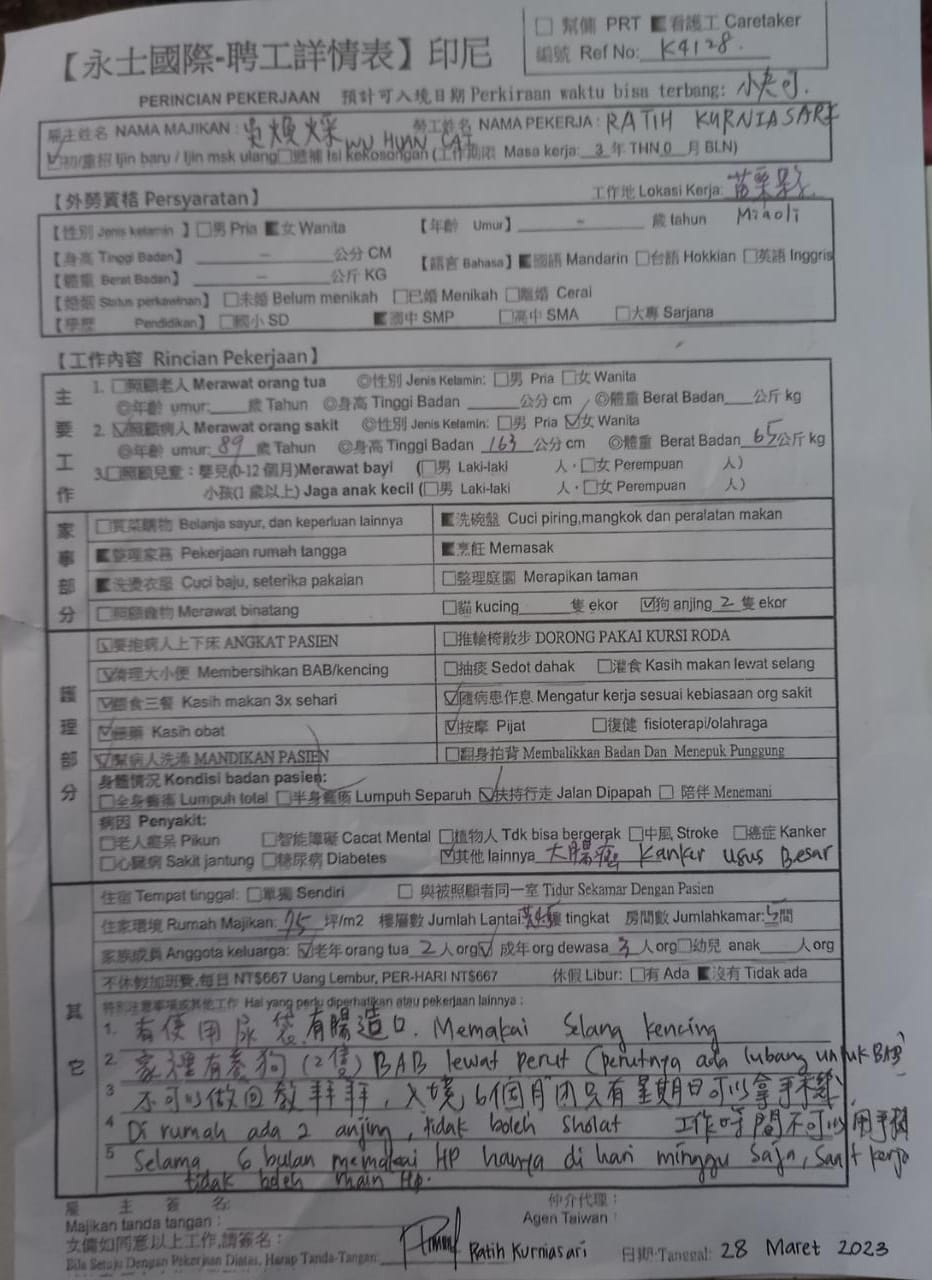 □ 幫傭 PRT ■ 看護工 Caretaker
編號 Ref No: K4128.
【永士國際-聘工詳情表】印尼
PERINCIAN PEKERJAAN 預計可入境日期 Perkiraan waktu bisa terbang:
雇主姓名 NAMA MAJIKAN : WU HUAN CAI 勞工姓名 NAMA PEKERJA : RATIH KURNIASARI
☑初/重招 Ijin baru / Ijin msk ulang □遞補 Isi kekosongan (工作期限 Masa kerja: 3 年 THN 0 月 BLN)
【外勞資格 Persyaratan】 工作地 Lokasi Kerja: 苗栗縣
Miaoli
【性別 Jenis kelamin】□男 Pria ■女 Wanita 【年齡 Umur】 – 歲 tahun
【身高 Tinggi Badan】 – 公分 CM 【語言 Bahasa】■國語 Mandarin □台語 Hokkian □英語 Inggris
【體重 Berat Badan】 – 公斤 KG
【婚姻 Status perkawinan】□未婚 Belum menikah □已婚 Menikah □離婚 Cerai
【學歷 Pendidikan】□國小 SD ■國中 SMP □高中 SMA □大專 Sarjana
【工作內容 Rincian Pekerjaan】
主要工作
1. □照顧老人 Merawat orang tua ◎性別 Jenis Kelamin: □男 Pria □女 Wanita
◎年齡 umur:____歲 Tahun ◎身高 Tinggi Badan ____公分 cm ◎體重 Berat Badan___公斤 kg
2. ☑照顧病人 Merawat orang sakit ◎性別 Jenis Kelamin: □男 Pria ☑女 Wanita
◎年齡 umur: 89 歲 Tahun ◎身高 Tinggi Badan 163 公分 cm ◎體重 Berat Badan 65 公斤 kg
3.□照顧兒童：嬰兒(0-12 個月)Merawat bayi (□男 Laki-laki 人·□女 Perempuan 人)
小孩(1 歲以上) Jaga anak kecil (□男 Laki-laki 人·□女 Perempuan 人)
家事部分
□買菜購物 Belanja sayur, dan keperluan lainnya ■洗碗盤 Cuci piring,mangkok dan peralatan makan
■整理家務 Pekerjaan rumah tangga ■烹飪 Memasak
■洗燙衣服 Cuci baju, seterika pakaian □整理庭園 Merapikan taman
□照顧寵物 Merawat binatang □貓 kucing____隻 ekor ☑狗 anjing 2 隻 ekor
護理部分
☑要抱病人上下床 ANGKAT PASIEN □推輪椅散步 DORONG PAKAI KURSI RODA
☑清理大小便 Membersihkan BAB/kencing □抽痰 Sedot dahak □灌食 Kasih makan lewat selang
☑餵食三餐 Kasih makan 3x sehari ☑隨病患作息 Mengatur kerja sesuai kebiasaan org sakit
☑餵藥 Kasih obat ☑按摩 Pijat □復健 fisioterapi/olahraga
☑幫病人洗澡 MANDIKAN PASIEN □翻身拍背 Membalikkan Badan Dan Menepuk Punggung
身體情況 Kondisi badan pasien:
□全身癱瘓 Lumpuh total □半身癱瘓 Lumpuh Separuh ☑扶持行走 Jalan Dipapah □ 陪伴 Menemani
病因 Penyakit:
□老人癡呆 Pikun □智能障礙 Cacat Mental □植物人 Tdk bisa bergerak □中風 Stroke □癌症 Kanker
□心臟病 Sakit jantung □糖尿病 Diabetes ☑其他 lainnya 大腸癌 Kanker Usus Besar
其它
住宿 Tempat tinggal: □單獨 Sendiri □ 與被照顧者同一室 Tidur Sekamar Dengan Pasien
住家環境 Rumah Majikan: 75 坪/m2 樓層數 Jumlah Lantai 樓 tingkat 房間數 Jumlahkamar: 5 間
家族成員 Anggota keluarga: ☑老年 orang tua 2 人org ☑ 成年 org dewasa 3 人org □幼兒 anak____人org
不休假加班費,每日 NT$667 Uang Lembur, PER-HARI NT$667 休假 Libur: □有 Ada ■沒有 Tidak ada
特別注意事項或其他工作 Hal yang perlu diperhatikan atau pekerjaan lainnya :
1. 有使用尿袋, 有腸造口. Memakai Selang kencing
2. 家裡有養狗 (2隻) BAB lewat perut (perutnya ada lubang untuk BAB)
3 不可以做回教拜拜, 入境6個月內只有星期日可以拿手機,
4 Di rumah ada 2 anjing, tidak boleh sholat 工作時間不可以用手機
5 Selama 6 bulan memakai HP hanya di hari minggu saja, saat kerja
tidak boleh main Hp.
雇 主 簽 名: 仲介代理：
Majikan tanda tangan : Agen Taiwan :
女傭如同意以上工作,請簽名：
Bila Setuju Dengan Pekerjaan Diatas, Harap Tanda-Tangan: Ratih Kurniasari 日期·Tanggal: 28 Maret 2023